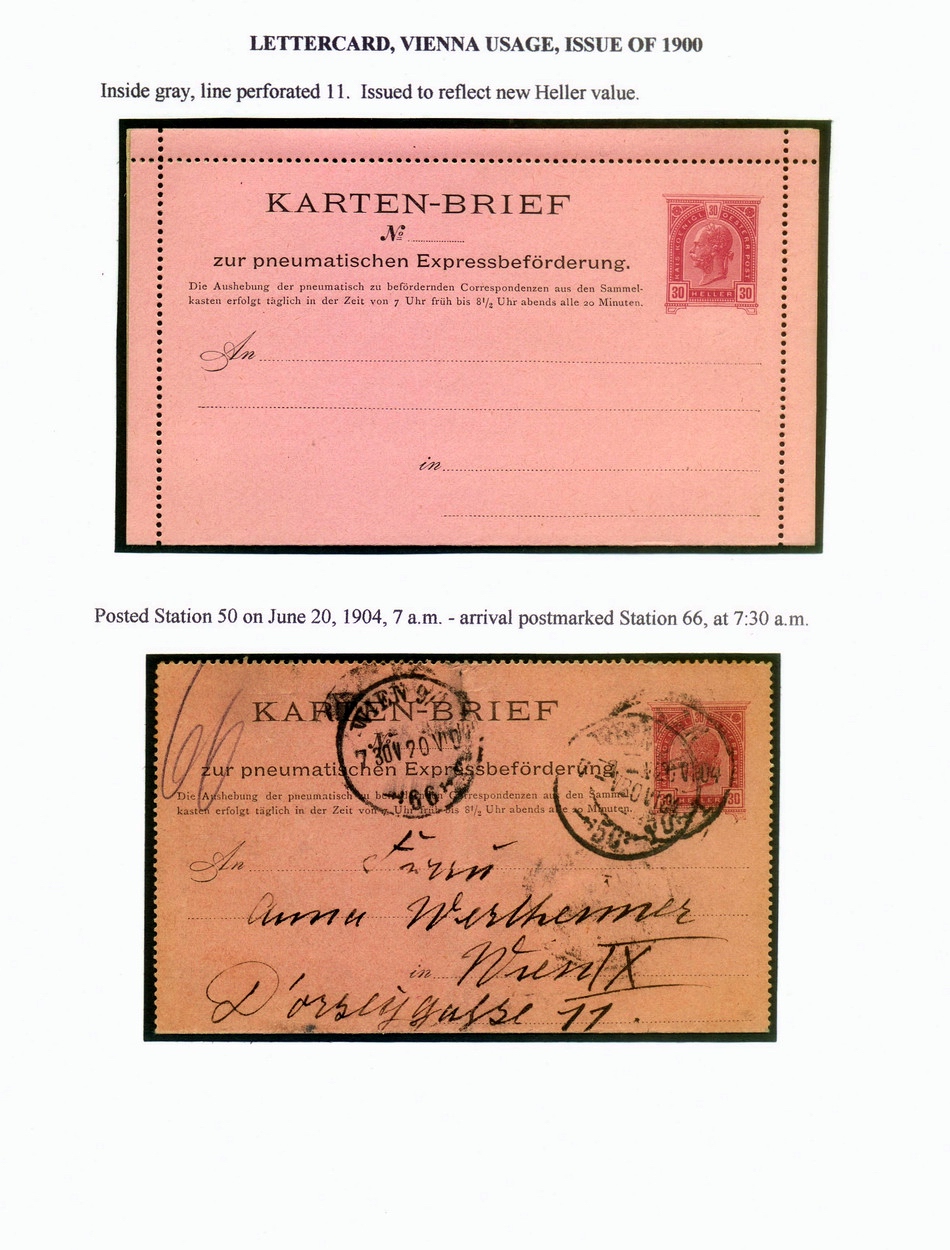 LETTERCARD, VIENNA USAGE, ISSUE OF 1900
Inside gray, line perforated 11. Issued to reflect new Heller value.
KARTEN-BRIEF
No
zur pneumatischen Expressbeförderung.
Die Aushebung der pneumatisch zu befördernden Correspondenzen aus den Sammel-
kasten erfolgt täglich in der Zeit von 7 Uhr früh bis 8½ Uhr abends alle 20 Minuten.
30
KAIS KOENIGL OESTERR POST
30 HELLER 30
An
in
Posted Station 50 on June 20, 1904, 7 a.m. - arrival postmarked Station 66, at 7:30 a.m.
66
KARTEN-BRIEF
WIEN 9/
7 30V 20 VI 0
66
zur pneumatischen Expressbeförderung.
Die Aushebung der pneumatisch zu befördernden Correspondenzen aus den Sammel-
kasten erfolgt täglich in der Zeit von 7 Uhr früh bis 8½ Uhr abends alle 20 Minuten.
30
50
An
Anna Wertheimer
in Wien IX
D'orseygasse 11.